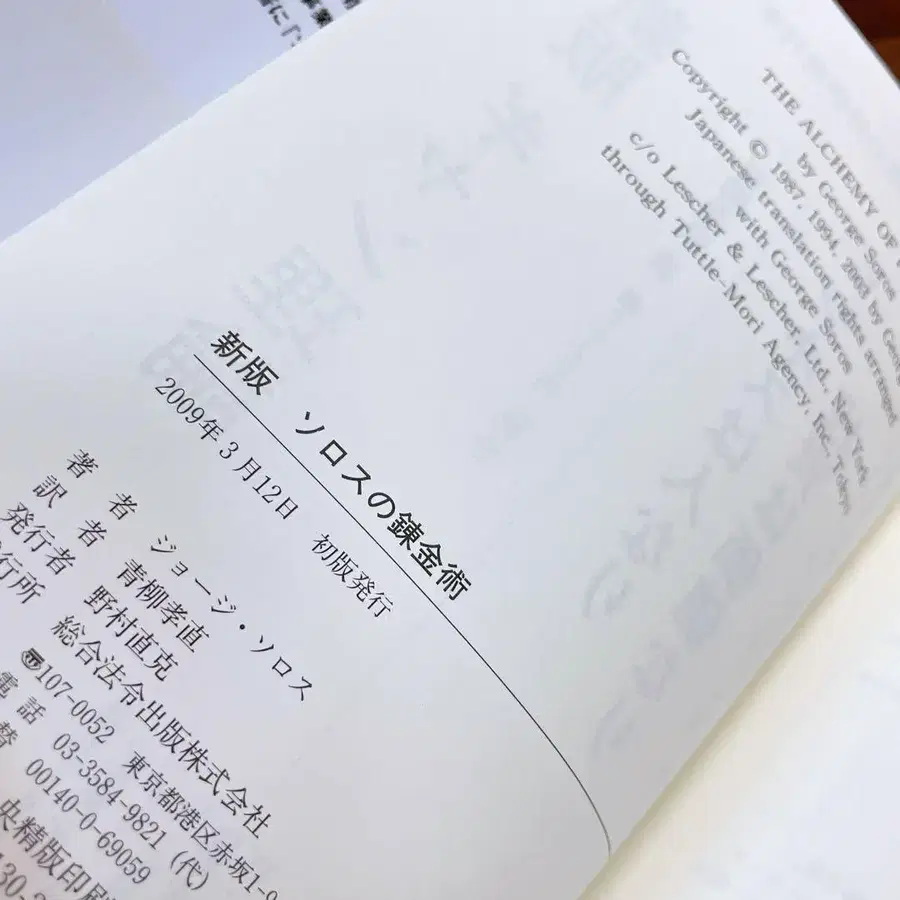 THE ALCHEMY OF
by George Soros
Copyright © 1987, 1994, 2003 by
Japanese translation rights arranged
with George Soros
c/o Lescher & Lescher, Ltd., New York
through Tuttle-Mori Agency, Inc., Tokyo
新版　ソロスの錬金術
2009年3月12日　初版発行
著　者　ジョージ・ソロス
訳　者　青柳孝直
発行者　野村直克
行所　総合法令出版株式会社
〒107-0052　東京都港区赤坂1-9
電話　03-3584-9821（代）
替　00140-0-69059
央精版印刷